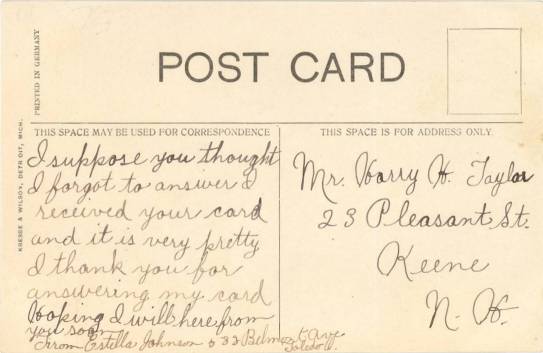 POST CARD
PRINTED IN GERMANY
KRESGE & WILSON, DETROIT, MICH.
THIS SPACE MAY BE USED FOR CORRESPONDENCE
THIS SPACE IS FOR ADDRESS ONLY.
I suppose you thought
I forgot to answer I
received your card
and it is very pretty
I thank you for
answering my card
Hoping I will here from
you soon
From Estella Johnson 633 Belmont Ave
Toledo O.
Mr. Harry H. Taylor
23 Pleasant St.
Keene
N. H.